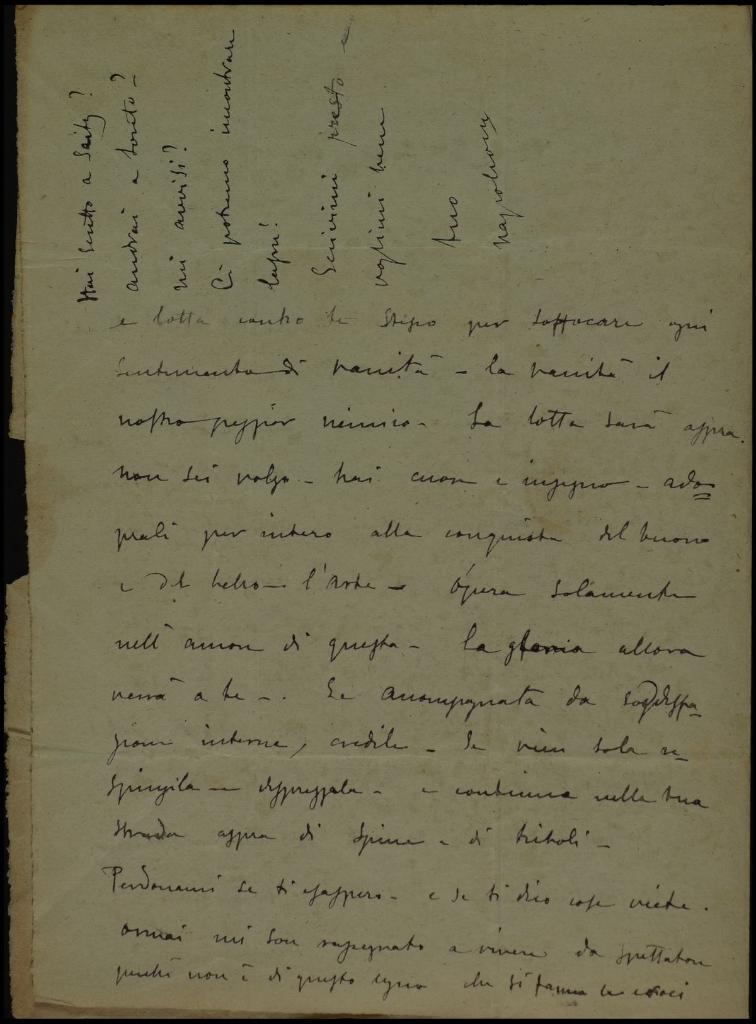 e lotta contro te stesso per soffocare ogni
sentimento di vanità – la vanità il
nostro peggior nemico – La lotta sarà aspra.
non sei volgo – hai cuore e ingegno – ado=
prali per intero alla conquista del buono
e del bello – l'Arte – Opera solamente
nell'amore di questa – la gloria allora
verrà a te – . Se accompagnata da soddisfa-
zioni interne, credile – Se vien sola re-
spingila – disprezzala – e continua nella tua
strada aspra di spine e di triboli –
Perdonami se ti esaspero – e se ti dico cose viete.
ormai mi son rassegnato a vivere da spettatore
perché non è di questo legno che si fanno le croci
Hai scritto a
andrai a
mi avvisi?
Ci potremo incontrare
Scrivimi presto e
vogliimi bene
tuo
Napoleone